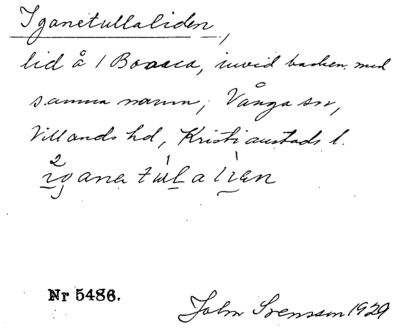 Iganetullaliden,
lid å 1 Boasca, invid backen med
samma namn, Vånga sn,
Villands hd, Kristianstads l.
iganetulalien
Nr 5486.
John Svensson 1929